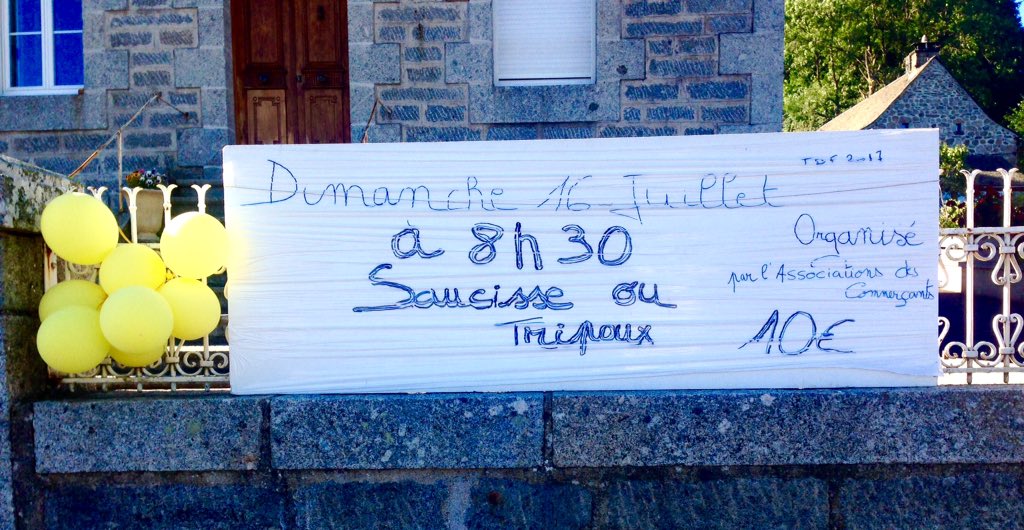 TDF 2017
Dimanche 16 Juillet
à 8h30
Saucisse ou
Tripoux
Organisé
par l'Associations des
Commerçants
10€